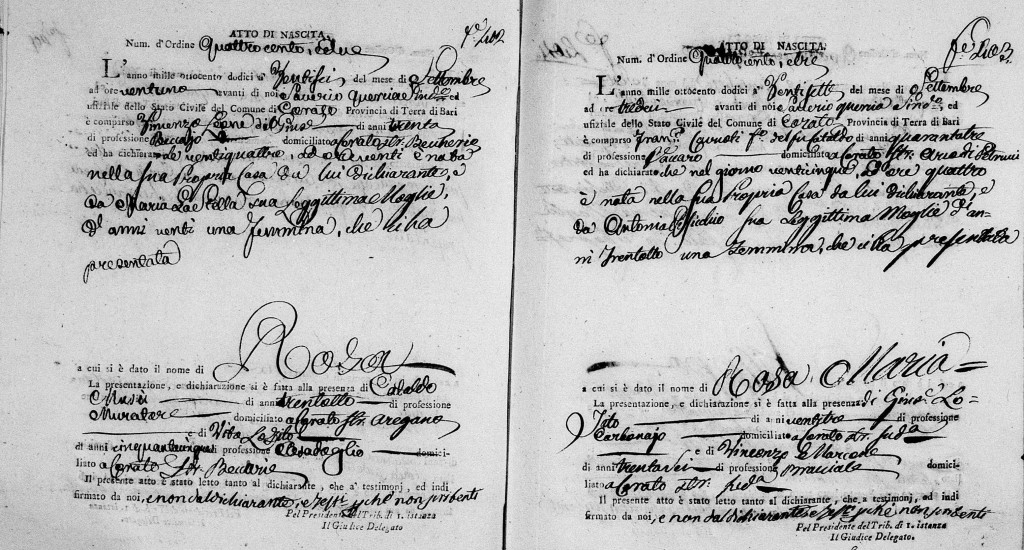 ATTO DI NASCITA.
Num. d'Ordine Quattrocento, e due
L'anno mille ottocento dodici a' Ventisei del mese di Settembre
ad ore ventuna avanti di noi Saverio Quercia Sindo ed
ufiziale dello Stato Civile del Comune di Corato Provincia di Terra di Bari
è comparso Vincenzo Leone di anni trenta
di professione domiciliato a Corato Str. Beccherie
ed ha dichiarato ventiquattro, ad ore venti è nata
nella sua propria Casa da lui dichiarante, e
da Maria sua Leggittima Moglie,
d'anni venti una femmina, che ci ha
presentata
a cui si è dato il nome di Rosa
La presentazione, e dichiarazione si è fatta alla presenza di Cataldo
di anni trentotto di professione
Muratore domiciliato a Corato Str.
e di Vito
di anni cinquantacinque di professione domici-
liato a Corato Str. Beccherie
Il presente atto è stato letto tanto al dichiarante, che a' testimonj, ed indi
firmato da noi, e non dal dichiarante, e perche non scribenti
Pel Presidente del Trib. di 1. istanza
Il Giudice Delegato.
ATTO DI NASCITA.
Num. d'Ordine Quattrocento, e tre
L'anno mille ottocento dodici a' Ventisette del mese di Settembre
ad ore tredici avanti di noi Saverio Quercia Sindo, ed
ufiziale dello Stato Civile del Comune di Corato Provincia di Terra di Bari
è comparso Fran. di anni quarantatre
di professione domiciliato a Corato Str. Petrucci
ed ha dichiarato che nel giorno venticinque, ad ore quattro
è nata nella sua propria Casa da lui dichiarante, e
da Antonia sua Leggittima Moglie d'an-
ni trentotto una femmina, che ci ha presentata
a cui si è dato il nome di Rosa Maria
La presentazione, e dichiarazione si è fatta alla presenza di Lo-
di anni ventitre di professione
Carbonajo domiciliato a Corato Str.
e di Vincenzo
di anni trentasei di professione Bracciale domici-
liato a Corato Str.
Il presente atto è stato letto tanto al dichiarante, che a testimonj, ed indi
firmato da noi, e non dal dichiarante, e perche non scribenti
Pel Presidente del Trib. di 1. istanza
Il Giudice Delegato.